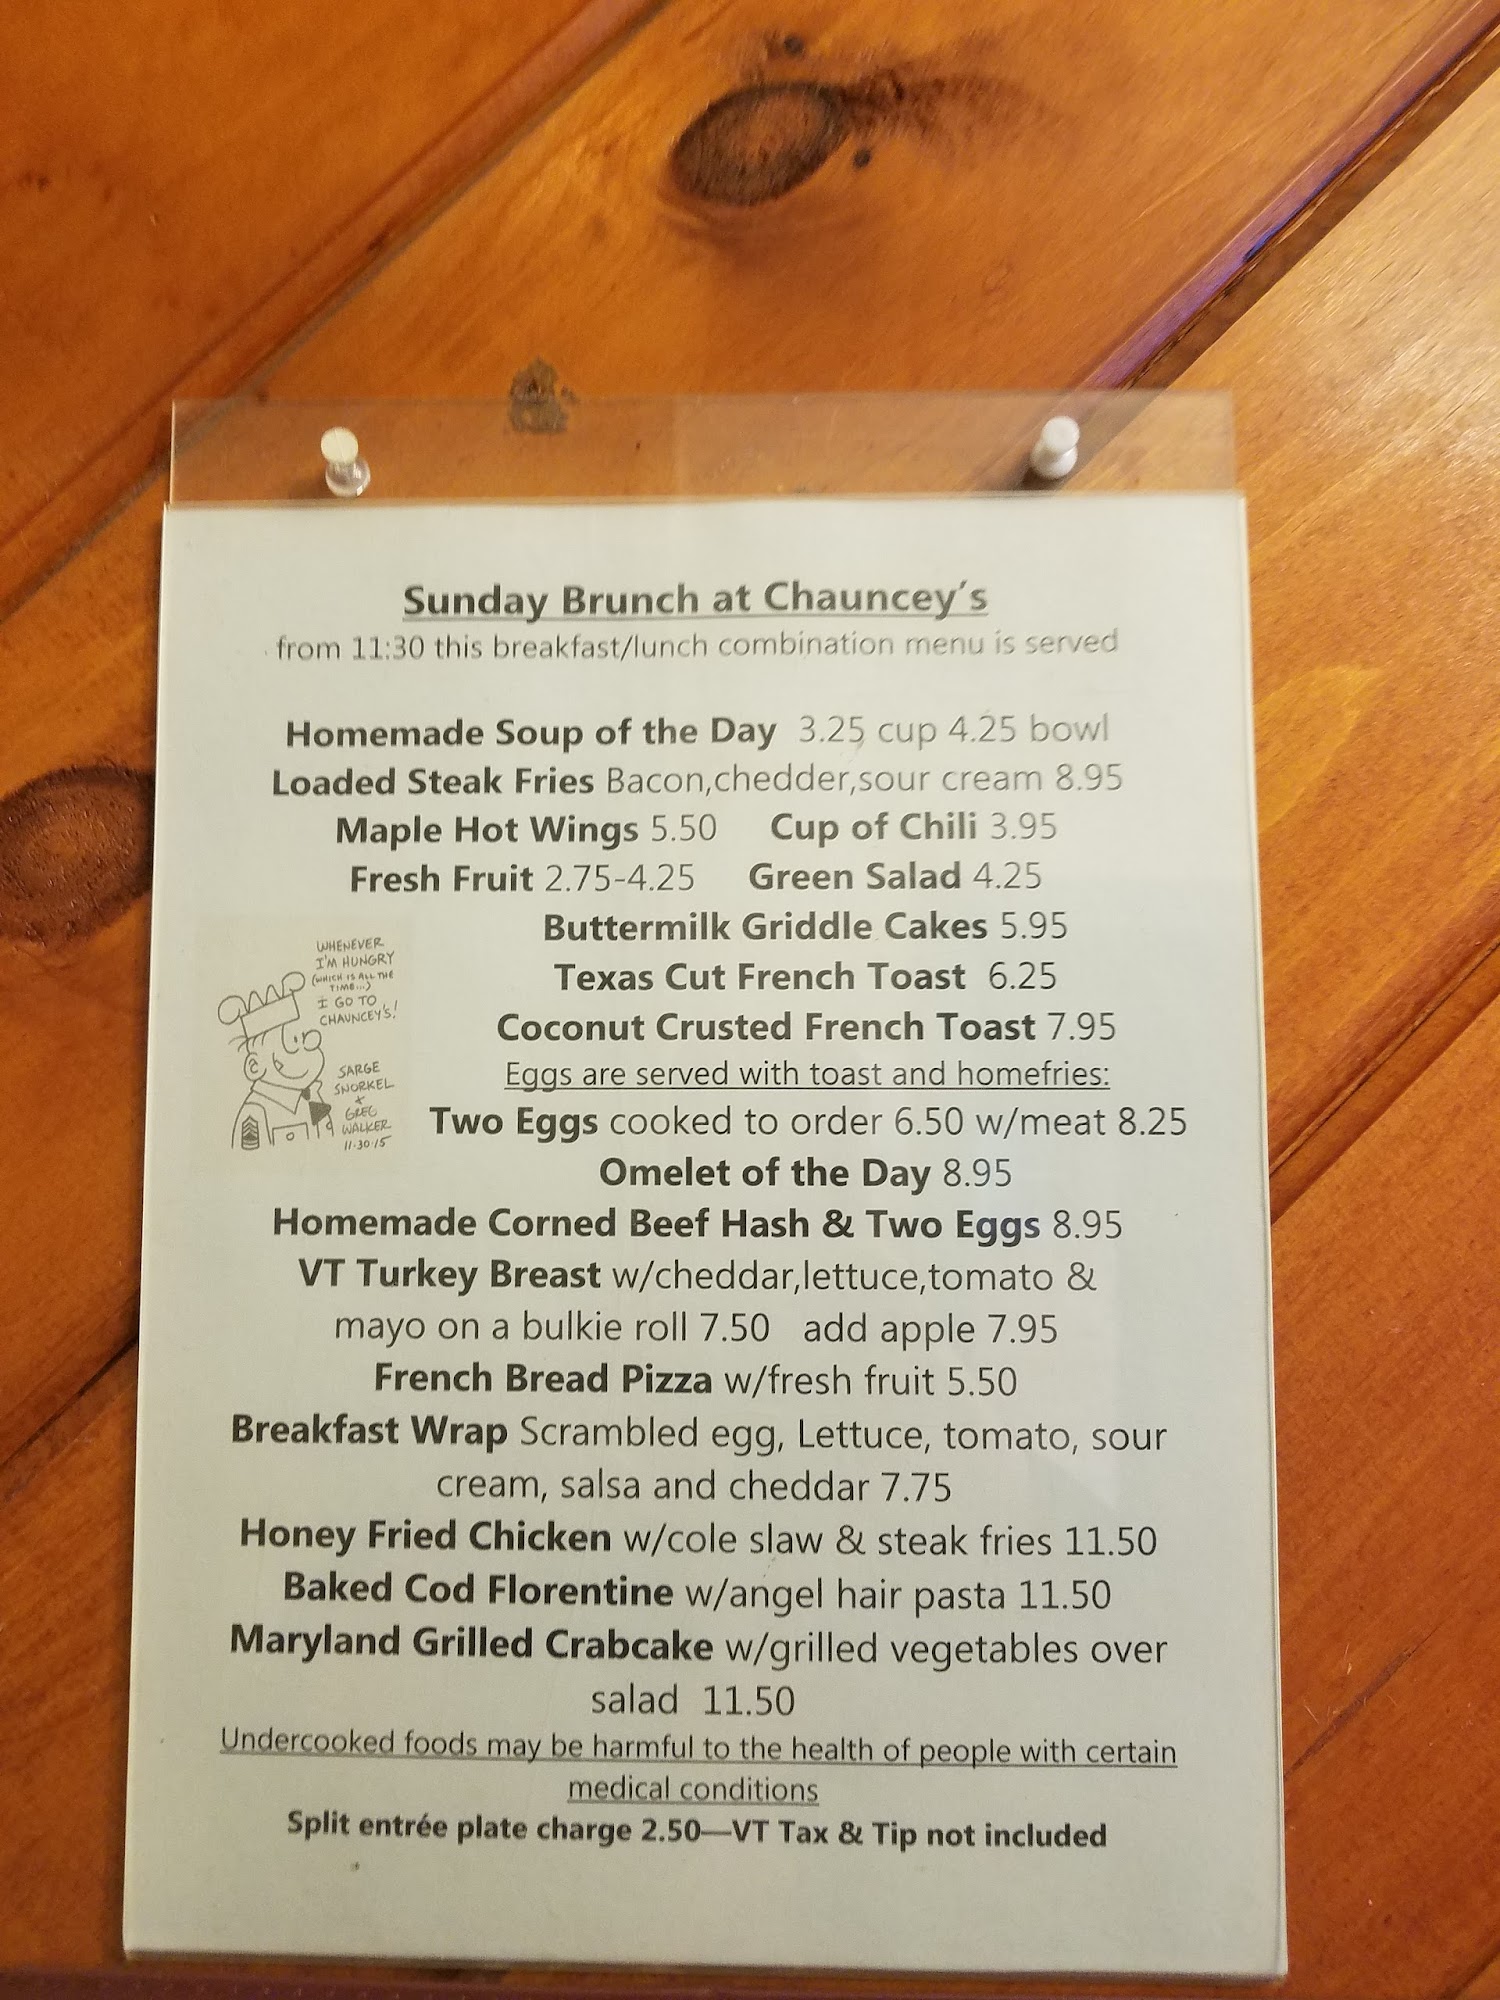 Sunday Brunch at Chauncey´s
from 11:30 this breakfast/lunch combination menu is served
Homemade Soup of the Day 3.25 cup 4.25 bowl
Loaded Steak Fries Bacon,chedder,sour cream 8.95
Maple Hot Wings 5.50 Cup of Chili 3.95
Fresh Fruit 2.75-4.25 Green Salad 4.25
Buttermilk Griddle Cakes 5.95
Texas Cut French Toast 6.25
Coconut Crusted French Toast 7.95
Eggs are served with toast and homefries:
Two Eggs cooked to order 6.50 w/meat 8.25
Omelet of the Day 8.95
WHENEVER
I'M HUNGRY
(WHICH IS ALL THE
TIME...)
I GO TO
CHAUNCEY'S!
SARGE
SNORKEL
+
GREG
WALKER
11·30·15
Homemade Corned Beef Hash & Two Eggs 8.95
VT Turkey Breast w/cheddar,lettuce,tomato &
mayo on a bulkie roll 7.50 add apple 7.95
French Bread Pizza w/fresh fruit 5.50
Breakfast Wrap Scrambled egg, Lettuce, tomato, sour
cream, salsa and cheddar 7.75
Honey Fried Chicken w/cole slaw & steak fries 11.50
Baked Cod Florentine w/angel hair pasta 11.50
Maryland Grilled Crabcake w/grilled vegetables over
salad 11.50
Undercooked foods may be harmful to the health of people with certain
medical conditions
Split entrée plate charge 2.50—VT Tax & Tip not included